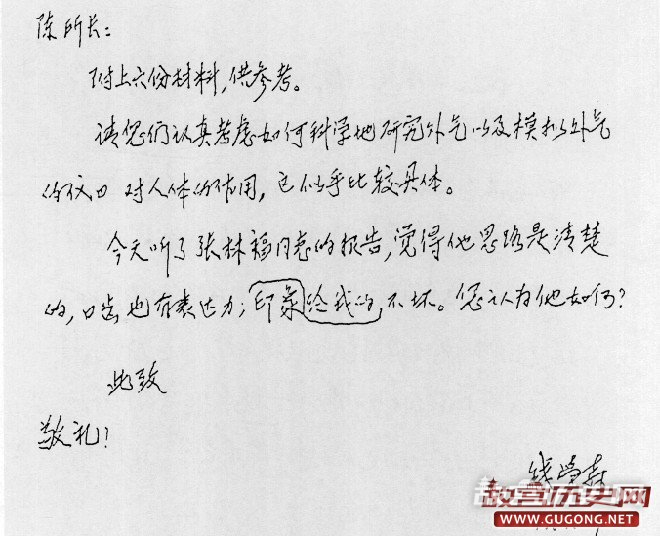 陈所长：
附上六份材料，供参考。
请您们认真考虑如何科学地研究外气以及模拟外气
的仪口 对人体的作用，它似乎比较具体。
今天听了张林福同志的报告，觉得他思路是清楚
的，口齿也有表达力；印象给我的，不坏。您认为他如何？
此致
敬礼！
钱学森
故宫历史网
WWW.GUGONG.NET